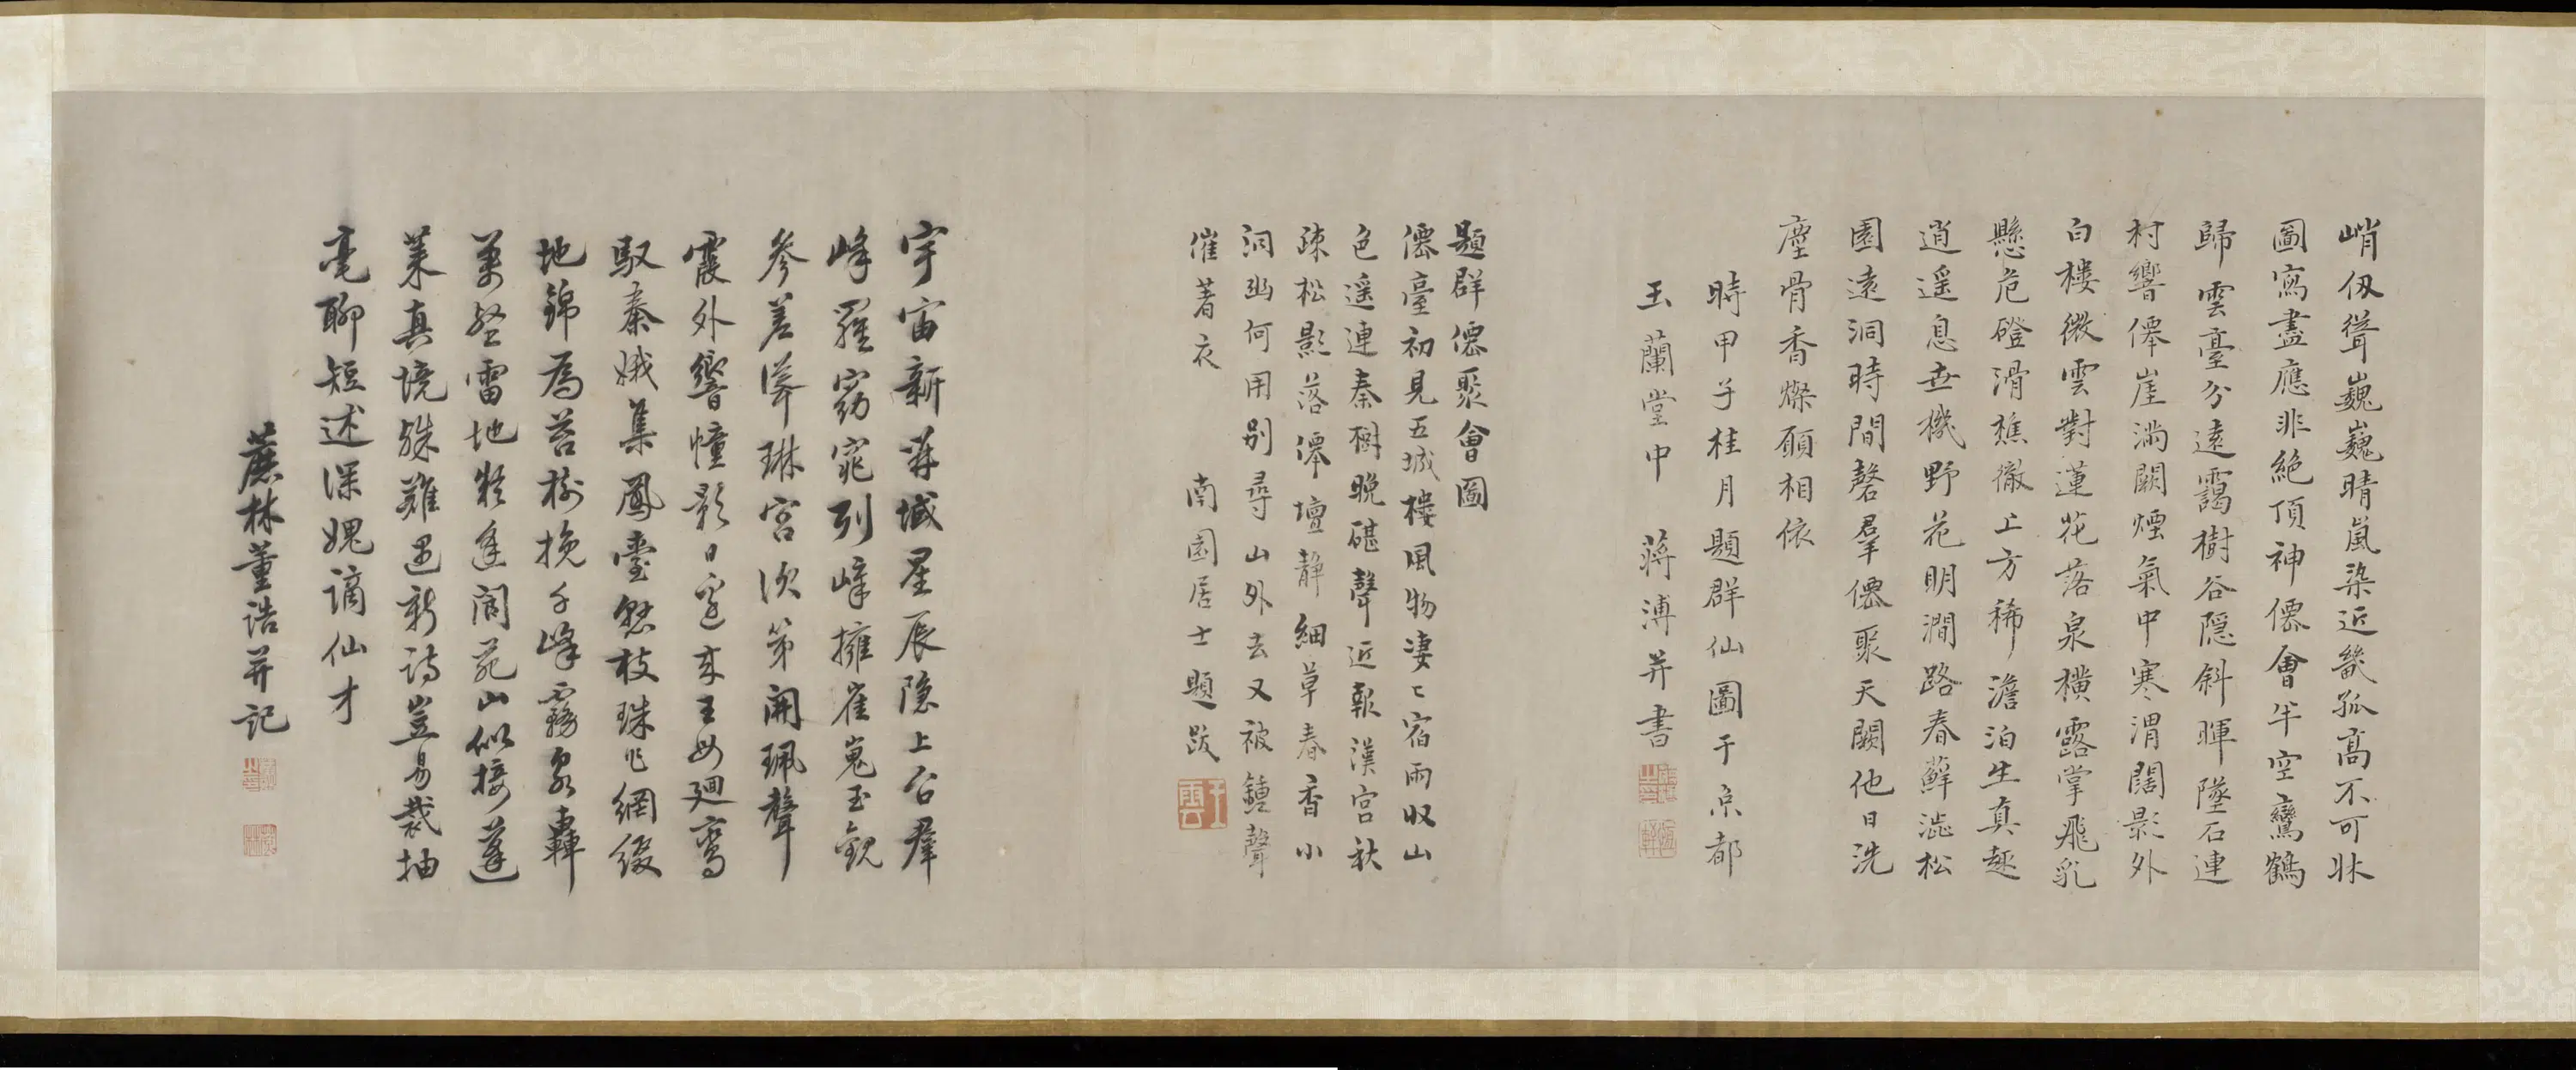 峭仭聳巍巍晴嵐染近畿孤高不可牀
圖寫盡應非絕頂神僊會半空鸞鶴
歸雲臺分遠靄樹谷隱斜暉墜石連
村響僊崖滿闕煙氣中寒渭闊影外
白樓微雲對蓮花落泉橫露掌飛乳
懸危磴滑樵徹上方稀澹泊生真趣
逍遥息世機野花明澗路春蘚澁松
園遠洞時間磬羣僊聚天闕他日洗
塵骨香燦願相依
時甲子桂月題群仙圖于京都
玉蘭堂中 蔣溥并書
題群僊聚會圖
僊臺初見五城樓風物淒〻宿雨收山
色遥連秦樹晚砧聲近報漢宮秋
疎松影落僊壇靜細草春香小
洞幽何用别尋山外去又被鍾聲
催著衣 南園居士題跋
宇宙新開域星辰隐上台羣
峰羅窈窕列嶂擁崔嵬玉觀
參差聳琳宮次第開珮聲
霞外響幢影日邊來王母迴鸞
馭秦娥集鳳臺愁枝珠作網綴
地錦為苔樹挽千峰霧泉轟
萬壑雷地疑逢閬苑山似接蓬
萊真境殊難遇新詩豈易裁抽
毫聊短述深媿謫仙才
蔗林董誥并記